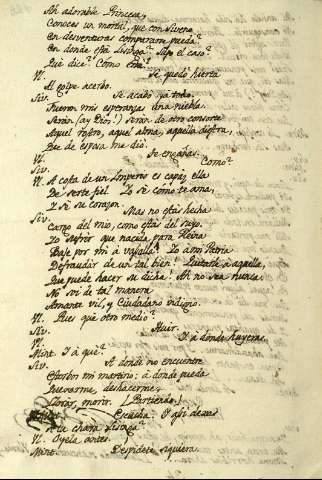 Ah adorable Princesa,
Conoces un mortal, que con Siveno
En desventuras compararse pueda?
En donde está Lisinga? Supo el caso?
Que dice? Como está?
Ul. Se quedó hierta
Al golpe acerbo.
Siv. Se acabó ya todo.
Fueron mis esperanzas una niebla.
Serán (ay Dios!) Serán de otro consorte
Aquel rostro, aquel alma, aquella diestra,
Que de esposa me dió.
Ul. Te engañas.
Siv. Como?
Ul. A costa de un Imperio es capaz ella
De serte fiel. Yo sé como te ama,
Y sé su corazon.
Siv. Mas no está hecha
Cargo del mio, como está del suyo.
Yo sufrir que nacida para Reina
Baje por mi á vasalla? Yo á mi Patria
Defraudar de un tal bien? Quitarle á aquella,
Que puede hacer su dicha? Ah no sea nunca
No soi de tal manera
Amante vil, y Ciudadano indigno.
Ul. Pues que otro medio?
Siv. Huir.
Ul. Y á donde huyeras?
Mint. Y á qué?
Siv. A donde no encuentre
Estorbo mi martirio: á donde pueda
Quexarme, deshacerme,
Llorar, morir. (Partiendo)
Escucha. Y así dexas
A la chara Lisinga?
Ul. Oyela antes.
Mint. Despidete siquiera.